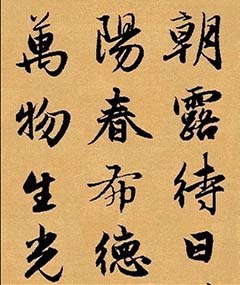 朝露待日
陽春布德
萬物生光